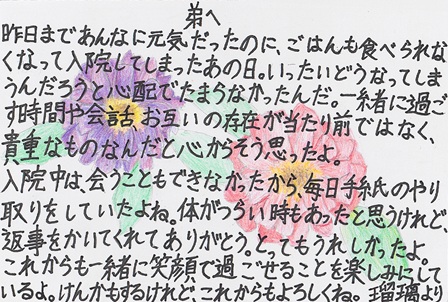 弟へ
昨日まであんなに元気だったのに、ごはんも食べられな
くなって入院してしまったあの日。いったいどうなってしま
うんだろうと心配でたまらなかったんだ。一緒に過ご
す時間や会話、お互いの存在が当たり前ではなく、
貴重なものなんだと心からそう思ったよ。
入院中は、会うこともできなかったから、毎日手紙のやり
取りをしていたよね。体がつらい時もあったと思うけれど、
返事をかいてくれてありがとう。とってもうれしかったよ。
これからも一緒に笑顔で過ごせることを楽しみにして
いるよ。けんかもするけれど、これからもよろしくね。瑠璃より